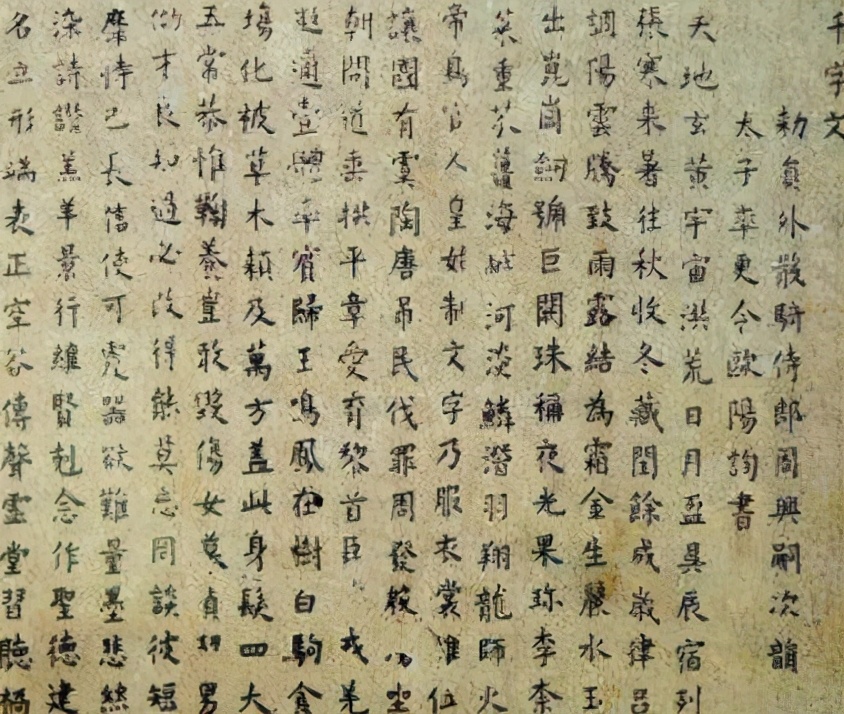 千字文
勅員外散騎侍郎周興嗣次韻
太子率更令歐陽詢書
天地玄黃宇宙洪荒日月盈昃辰宿列
張寒来暑往秋收冬藏閏餘成歲律呂
調陽雲騰致雨露結為霜金生麗水玉
出崑崗劒號巨闕珠稱夜光果珎李柰
菜重芥薑海鹹河淡鱗潛羽翔龍師火
帝鳥官人皇始制文字乃服衣裳推位
讓國有虞陶唐弔民伐罪周發殷坐
朝問道垂拱平章愛育黎首臣戎羌
遐邇壹體率賓歸王鳴鳳在樹白駒食
場化被草木賴及萬方蓋此身髮四大
五常恭惟鞠養豈敢毀傷女慕貞男
效才良知過必改得能莫忘罔談彼短
靡恃己長信使可覆器欲難量墨悲絲
染詩讚羔羊景行維賢剋念作聖德建
名立形端表正空谷傳聲虛堂習聽禍